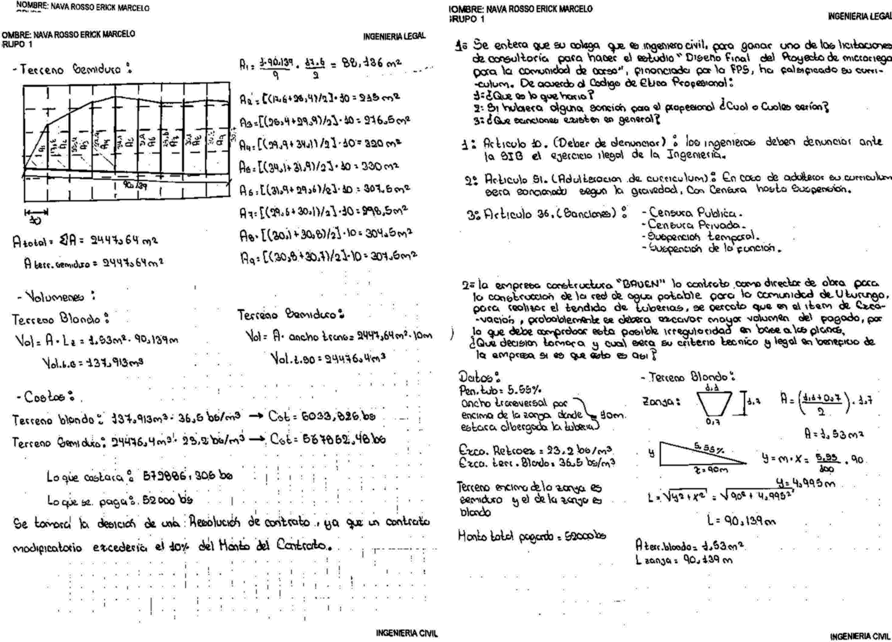 NOMBRE: NAVA ROSSO ERICK MARCELO
OMBRE: NAVA ROSSO ERICK MARCELO
RUPO 1
INGENIERIA LEGAL
- Terreno Semiduro:
10
90,139
A total = ΣA = 2447,64 m2
A terr. semiduro = 2447,64 m2
A1 = 1·90,139/9 · 17.6/2 = 88,136 m2
A2 = [(17,6+26,4)/2]·10 = 215 m2
A3 = [(26,4+29,9)/2]·10 = 276,5 m2
A4 = [(29,9+34,1)/2]·10 = 320 m2
A5 = [(34,1+31,9)/2]·10 = 330 m2
A6 = [(31,9+29,6)/2]·10 = 307,5 m2
A7 = [(29,6+30,1)/2]·10 = 298,5 m2
A8 = [(30,1+30,8)/2]·10 = 304,5 m2
A9 = [(30,8+30,7)/2]·10 = 307,5 m2
- Volumenes:
Terreno Blando:
Vol = A · Lz = 1,53m2 · 90,139m
Vol.t.b = 137,913m3
Terreno Semiduro:
Vol = A · ancho transv = 2447,64m2 · 10m
Vol.t.so = 24476,4m3
- Costos:
Terreno blando: 137,913m3 · 36,5 bs/m3 → Cot = 5033,825 bs
Terreno Semiduro: 24476,4m3 · 23,2 bs/m3 → Cot = 567852,48 bs
Lo que costara: 572886,305 bs
Lo que se paga: 52000 bs
Se tomará la desición de una Resolución de contrato, ya que un contrato
modificatorio excederia el 10% del Monto del Contrato.
INGENIERIA CIVIL
IOMBRE: NAVA ROSSO ERICK MARCELO
GRUPO 1
INGENIERIA LEGAL
1= Se entera que su colega que es ingeniero civil, para ganar una de las licitaciones
de consultoría para hacer el estudio "Diseño Final del Proyecto de microriego
para la comunidad de corso", financiado por la FPS, ha falsificado su curri-
-culum. De acuerdo al Codigo de Etica Profesional:
1= ¿Que es lo que haria?
2= Si hubiera alguna sanción para el profesional ¿Cual o Cuales serían?
3= ¿Que sanciones existen en general?
1= Articulo 10. (Deber de denunciar): los ingenieros deben denunciar ante
la SIB el ejercicio ilegal de la Ingeniería.
2= Articulo 31. (Adulteracion de curriculum): En caso de adulterar su curriculum
sera sancionado segun la gravedad, Con Censura hasta Suspensión.
3= Articulo 36. (Sanciones): - Censura Publica.
- Censura Privada.
- Suspencion temporal.
- Suspención de la función.
2= la empresa constructora "BAUEN" lo contrato como director de obra para
la construccion de la red de agua potable para la comunidad de Uturungo,
para realizar el tendido de tuberias, se percato que en el item de Exca-
-vación, probablemente se debera excavar mayor volumen del pagado, por
lo que debe comprobar esta posible irregularidad en base a los planos,
¿Que decision tomara y cual sera su criterio tecnico y legal en beneficio de
la empresa si es que esto es asi?
Datos:
Pen. tub = 5.55%
ancho transversal por
encima de la zanja donde 10m.
estara albergada la tuberia
Exca. Retroex = 23,2 bs/m3
Exca. terr. Blando = 36,5 bs/m3
Terreno encima de la zanja es
semiduro y el de la zanja es
blando
Monto total pagando = 52000bs
- Terreno Blando:
Zanja:
1.1
1,7
0,7
A = (1,1+0,7/2) · 1,7
A = 1,53m2
y
5,55%
x = 90m
y = m · x = 5,55/100 · 90
y = 4,995m
L = √y2 + x2 = √90² + 4,995²
L = 90,139m
A terr. blando = 1,53m2
L zanja = 90,139m
INGENIERIA CIVIL